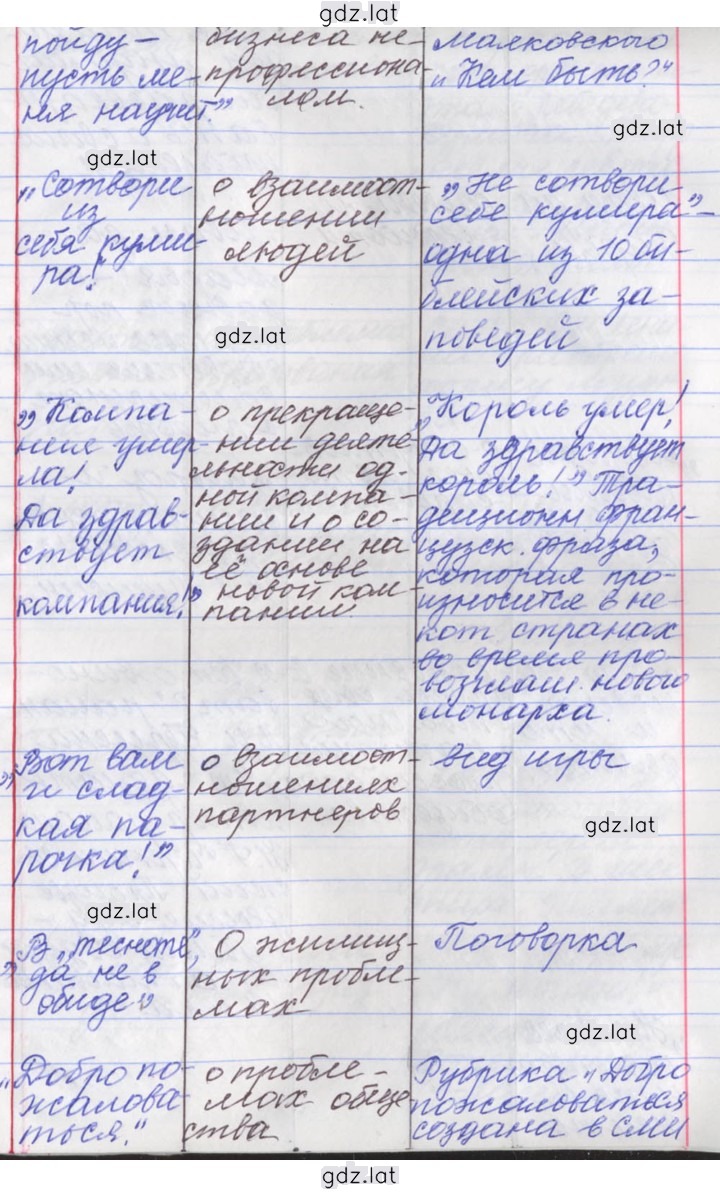 gdz.lat
пойду-
пусть ме-
ня научит."
бизнеса не-
профессиона-
лом.
Маяковского
"Кем быть?"
gdz.lat
gdz.lat
"Сотвори
из
себя куми-
ра!"
о взаимоот-
ношении
людей
"Не сотвори
себе кумира"-
одна из 10 би-
блейских за-
поведей
gdz.lat
"Компа-
ния умер-
ла!
Да здрав-
ствует
компания!"
о прекраще-
нии деяте-
льности од-
ной компа-
нии и о со-
здании на
её основе
новой ком-
пании.
"Король умер!
Да здравствует
король!" Тра-
диционн. фран-
цузск. фраза,
которая про-
износится в не-
кот. странах
во время про-
возглаш. нового
монарха.
"Вот вам
и слад-
кая па-
рочка!"
о взаимоот-
ношениях
партнеров
вид игры
gdz.lat
gdz.lat
"В "тесноте",
да не в
обиде"
О жилищ-
ных пробле-
мах
Поговорка
gdz.lat
"Добро по-
жалова-
ться."
о пробле-
мах обще-
ства
Рубрика "Добро
пожаловаться
создана в СМИ
gdz.lat